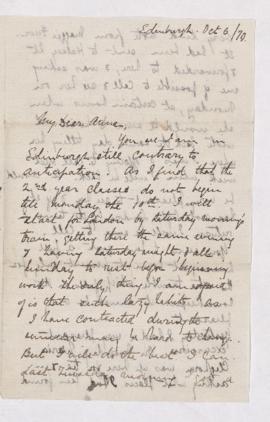 Edinburgh. Oct 6/70.
My Dear Annie,
You see I am in
Edinburgh still, contrary to
anticipation. As I find that the
2nd year classes do not begin
till Monday the 10th I will
start for London by Saturday morning's
train, getting there the same evening
& having Saturday night & all
Sunday to rest before beginning
work. The only thing I am afraid
of is that such lazy habits as
I have contracted during the
summer may be hard to
But I will do the best I can.
Last